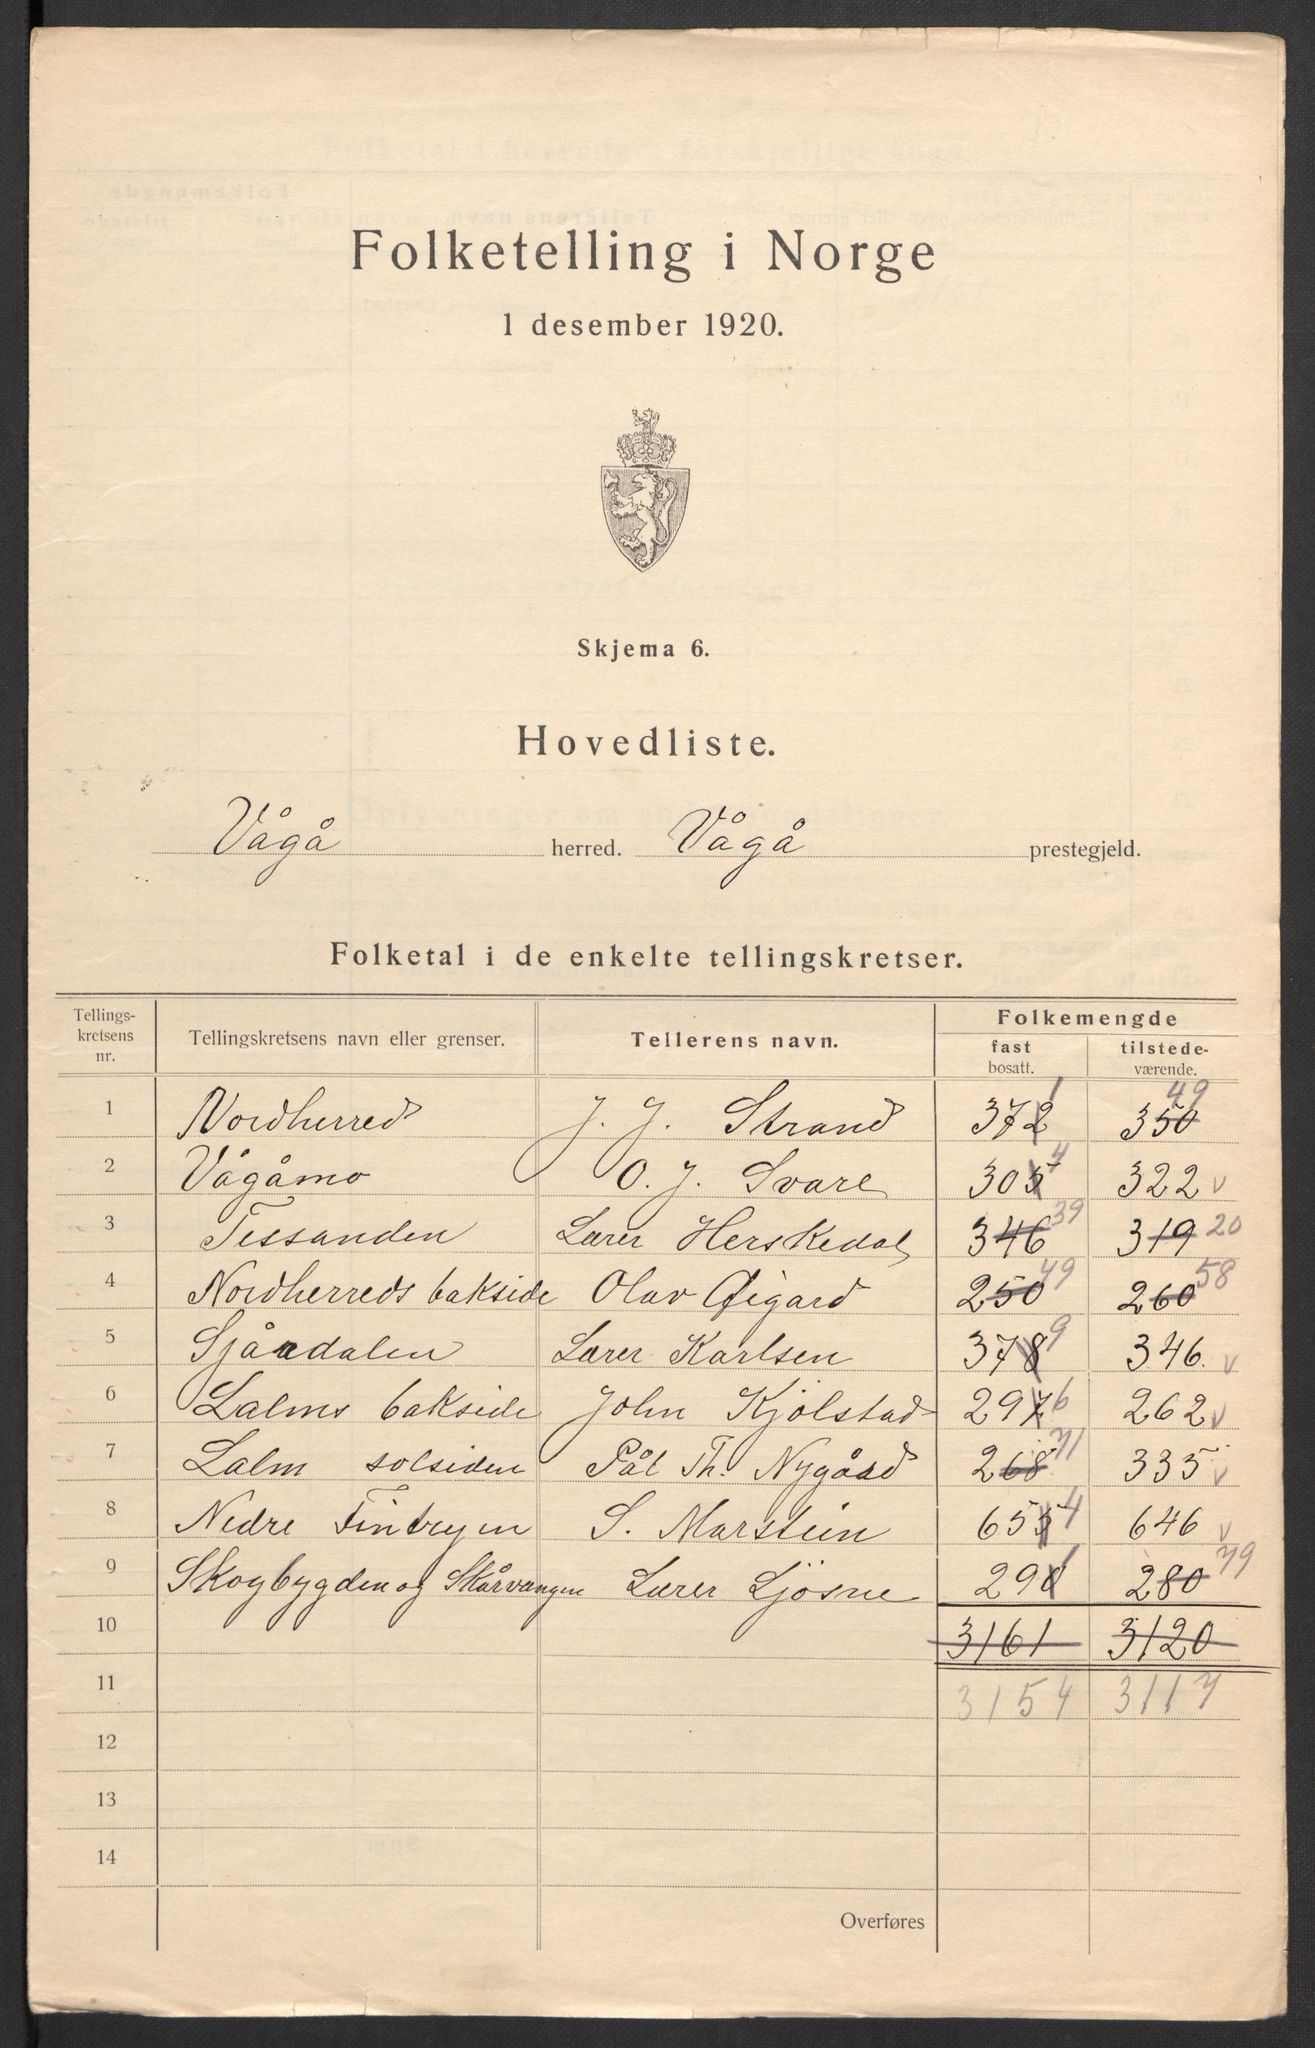 Folketelling i Norge
1 desember 1920.
Skjema 6.
Hovedliste.
Vågå herred. Vågå prestegjeld.
Folketal i de enkelte tellingskretser.
Tellings-
kretsens
nr.
Tellingskretsens navn eller grenser.
Tellerens navn.
Folkemengde
fast
bosatt.
tilstede-
værende.
1 Nordherred J. J. Strand 372 1 350 49
2 Vågåmo O. J. Svare 305 4 322 v
3 Tessanden Lærer Herskedal 346 39 319 20
4 Nordherreds bakside Olav Øigard 250 49 260 58
5 Sjåadalen Lærer Karlsen 378 9 346. v
6 Lalms bakside John Kjølstad 297 6 262 v
7 Lalm solsiden Pål Th. Nygård 268 71 335 v
8 Nedre S. Marstein 655 4 646 v
9 Skogbygden og Skårvangen Lærer Ljøsne 290 1 280 79
10 3161 3120
11 3154 3117
12
13
14
Overføres